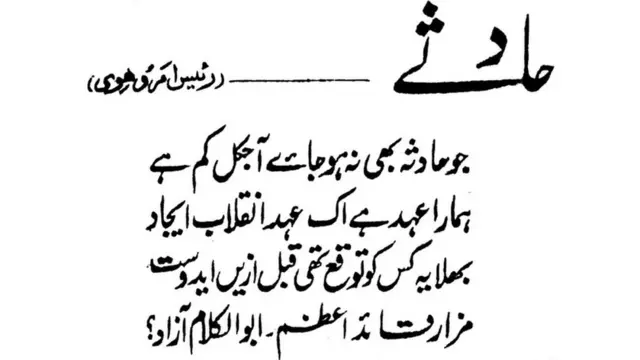 حادثے
(رئیس امروہوی)
جو حادثہ بھی نہ ہو جائے آجکل کم ہے
ہمارا عہد ہے اک عہد انقلاب ایجاد
بھلا یہ کس کو توقع تھی قبل ازیں ایدوست
مزار قائد اعظم ۔ ابوالکلام آزاد؟